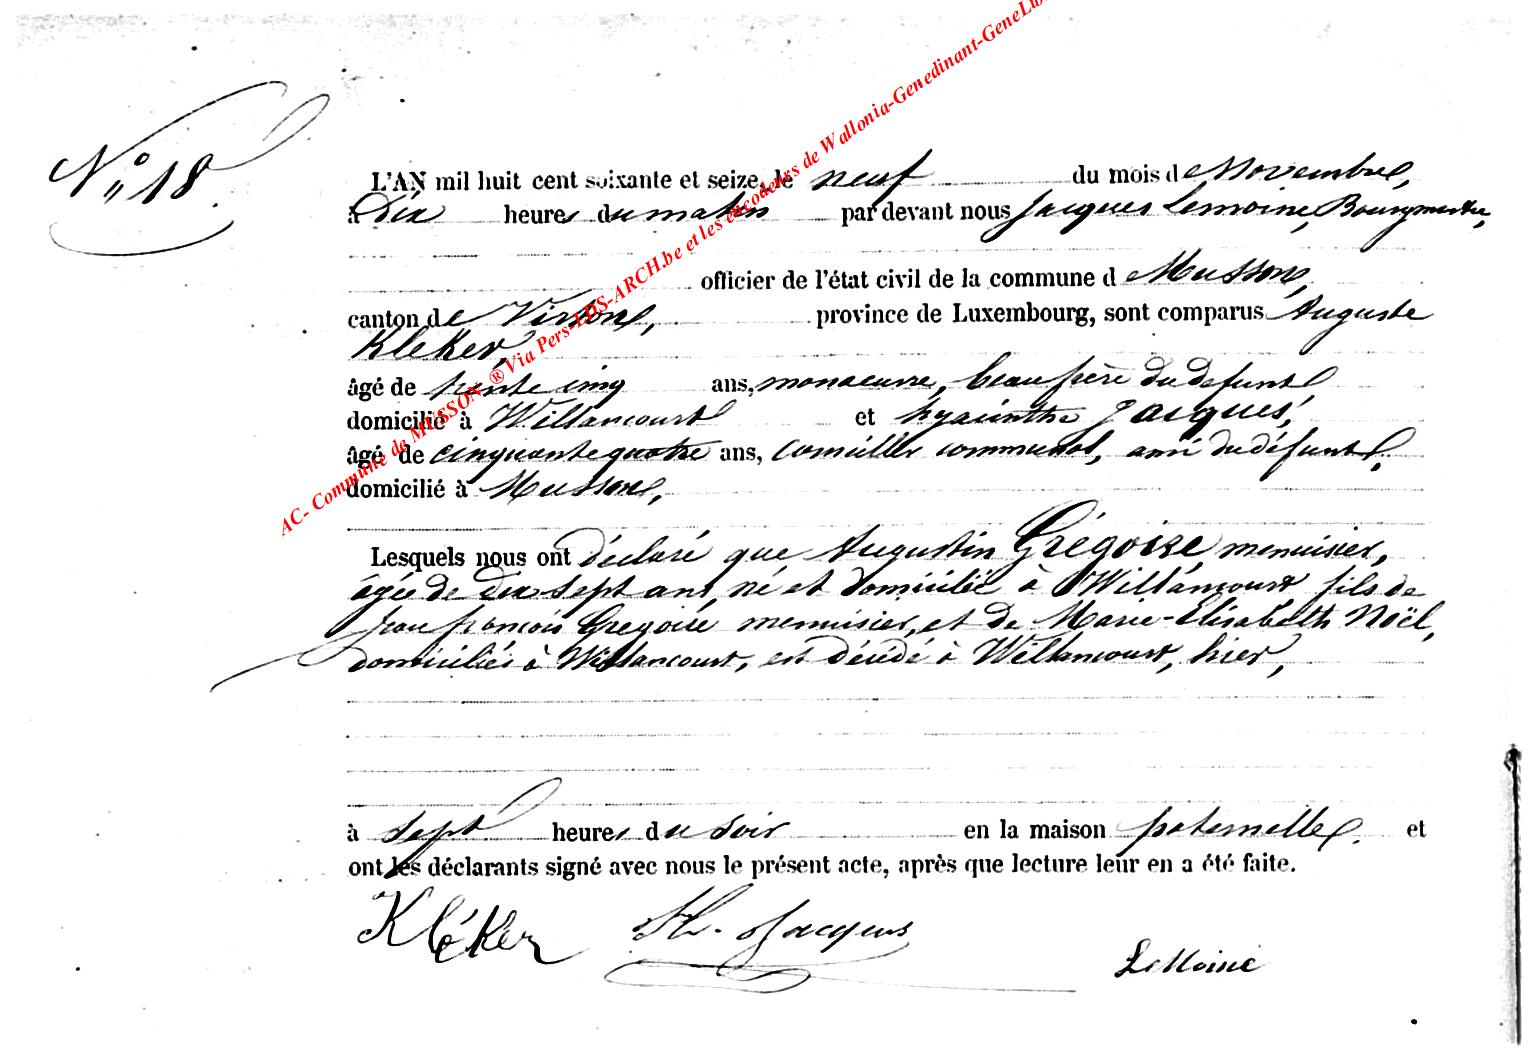 AC- Commune de MUSSON ® Via Pers-LDS-ARCH.be et les encodeurs de Wallonia-Genedinant-GeneLux
N° 18.
L'AN mil huit cent soixante et seize, le neuf du mois de Novembre,
à Dix heures du matin par devant nous Jacques Lemoine, Bourgmestre,
officier de l'état civil de la commune d Musson,
canton de Virton, province de Luxembourg, sont comparus Auguste
Kleker,
âgé de trente cinq ans, manoeuvre, beau frère du defunt
domicilié à Willancourt et hyacinthe Jacques,
âgé de cinquante quatre ans, conseiller communal, ami du défunt,
domicilié à Musson,
Lesquels nous ont déclaré que Augustin Grégoire, menuisier,
âgée de dix sept ans, né et domicilié à Willancourt fils de
Jean françois Gregoire menuisier, et de Marie-Elisabeth Noël,
domiciliés à Willancourt, est décédé à Willancourt, hier,
à sept heures du soir en la maison paternelle. et
ont les déclarants signé avec nous le présent acte, après que lecture leur en a été faite.
Kléker H. Jacques
LeMoine